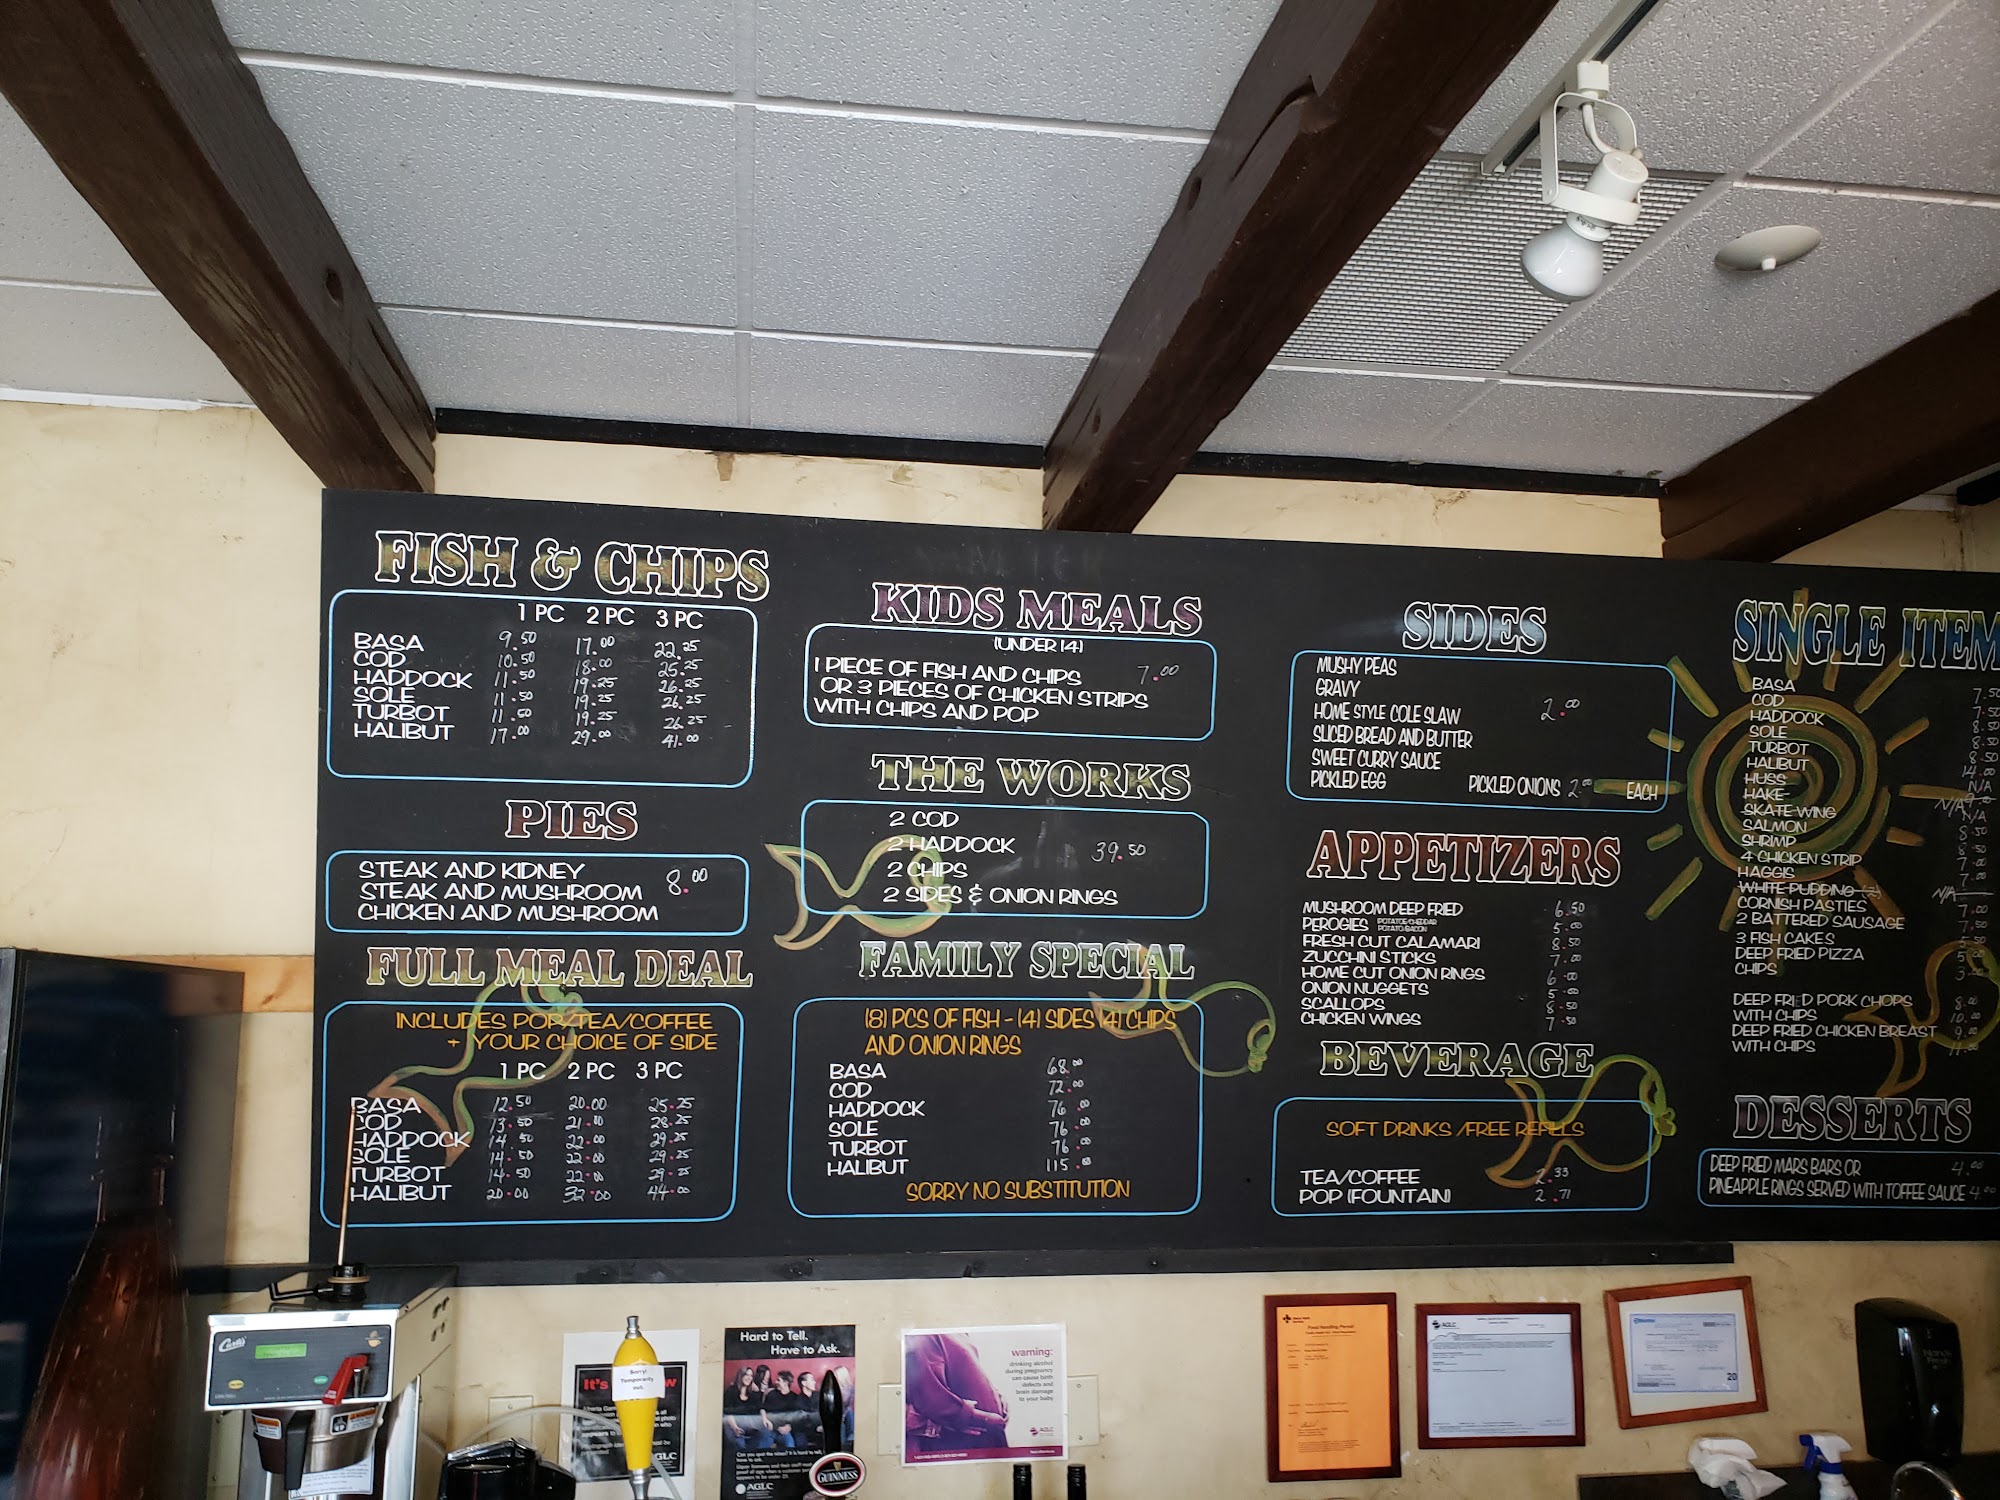 FISH & CHIPS
1 PC 2 PC 3 PC
BASA 9.50 17.00 22.25
COD 10.50 18.00 25.25
HADDOCK 11.50 19.25 26.25
SOLE 11.50 19.25 26.25
TURBOT 11.50 19.25 26.25
HALIBUT 17.00 29.00 41.00
PIES
STEAK AND KIDNEY
STEAK AND MUSHROOM 8.00
CHICKEN AND MUSHROOM
FULL MEAL DEAL
INCLUDES POP/TEA/COFFEE
+ YOUR CHOICE OF SIDE
1 PC 2 PC 3 PC
BASA 12.50 20.00 25.25
COD 13.50 21.00 28.25
HADDOCK 14.50 22.00 29.25
SOLE 14.50 22.00 29.25
TURBOT 14.50 22.00 29.25
HALIBUT 20.00 32.00 44.00
KIDS MEALS
(UNDER 14)
1 PIECE OF FISH AND CHIPS 7.00
OR 3 PIECES OF CHICKEN STRIPS
WITH CHIPS AND POP
THE WORKS
2 COD
2 HADDOCK 39.50
2 CHIPS
2 SIDES & ONION RINGS
FAMILY SPECIAL
(8) PCS OF FISH - (4) SIDES (4) CHIPS
AND ONION RINGS
BASA 68.00
COD 72.00
HADDOCK 76.00
SOLE 76.00
TURBOT 76.00
HALIBUT 115.00
SORRY NO SUBSTITUTION
SIDES
MUSHY PEAS
GRAVY
HOME STYLE COLE SLAW 2.00
SLICED BREAD AND BUTTER
SWEET CURRY SAUCE
PICKLED EGG PICKLED ONIONS 2.00 EACH
APPETIZERS
MUSHROOM DEEP FRIED 6.50
PEROGIES POTATOE/CHEDDAR POTATO/BACON 5.00
FRESH CUT CALAMARI 8.50
ZUCCHINI STICKS 7.00
HOME CUT ONION RINGS 6.00
ONION NUGGETS 5.00
SCALLOPS 8.50
CHICKEN WINGS 7.50
BEVERAGE
SOFT DRINKS /FREE REFILLS
TEA/COFFEE 2.33
POP (FOUNTAIN) 2.71
SINGLE ITEM
BASA 7.50
COD 7.50
HADDOCK 8.50
SOLE 8.50
TURBOT 8.50
HALIBUT 14.00
HUSS N/A
HAKE N/A
SKATE WING N/A
SALMON 8.50
SHRIMP 8.50
4 CHICKEN STRIP 7.00
HAGGIS 7.00
WHITE PUDDING N/A
CORNISH PASTIES 7.00
2 BATTERED SAUSAGE 7.50
3 FISH CAKES 5.50
DEEP FRIED PIZZA 5.00
CHIPS 3.00
DEEP FRIED PORK CHOPS 8.00
WITH CHIPS 10.00
DEEP FRIED CHICKEN BREAST 9.00
WITH CHIPS
DESSERTS
DEEP FRIED MARS BARS OR 4.00
PINEAPPLE RINGS SERVED WITH TOFFEE SAUCE 4.00
Curtis
Sorry!
Temporarily
out.
It's
AGLC
Hard to Tell.
Have to Ask.
AGLC
GUINNESS
warning:
drinking alcohol
during pregnancy
can cause birth
defects and
brain damage
to your baby
AGLC
Food Handling Permit
AGLC
20